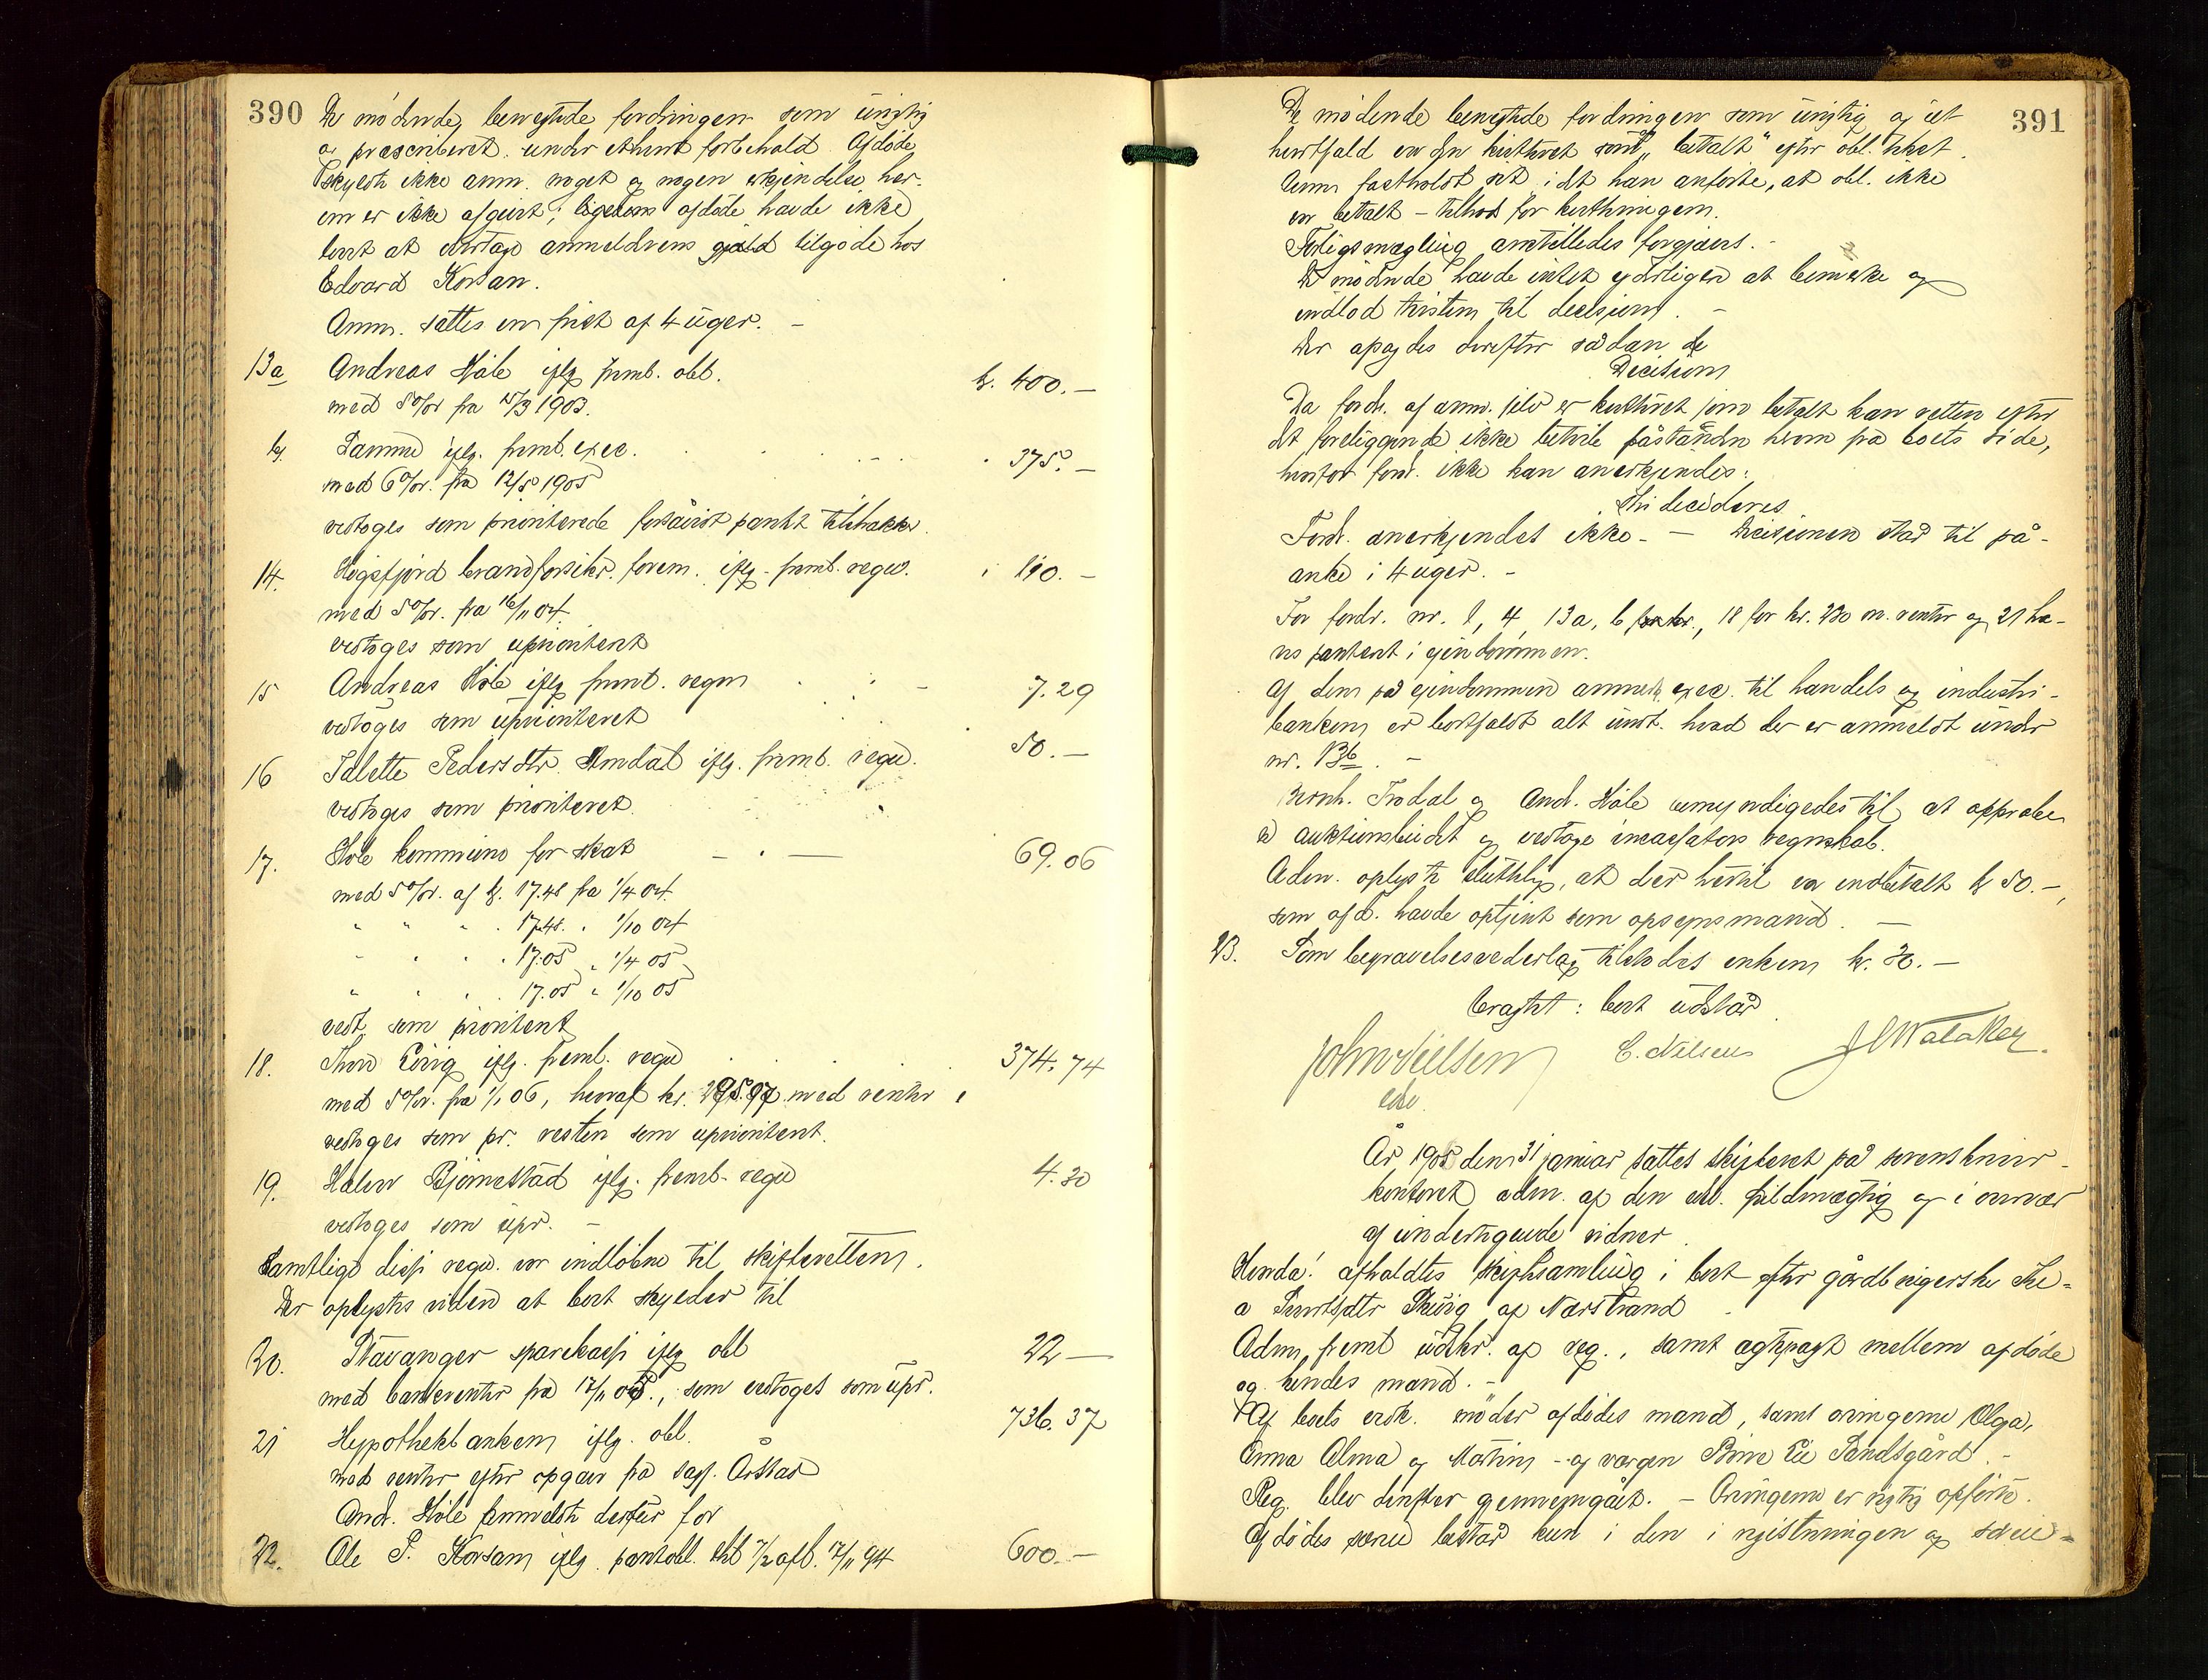 390
De mødende benegtede fordringen som urigtig
og præscriberet under ethvert forbehold. Afdøde
skyldte ikke anm. noget og nogen erkjendelse her-
om er ikke afgivet; ligesom afdøde havde ikke
lovt at overtage anmelderens gjæld tilgode hos
Edvard Korsan.
Anm. sattes en frist af 4 uger. -
13a Andreas Høle iflg fremb. obl. k. 400.-
med 5 0/0r fra 15/3 1903.
b. Samme iflg. fremb. exec. 375.-
med 6 0/0r. fra 12/5 1905
vedtoges som prioriterede forsåvidt pantet tilstrækker.
14. Høgsfjord brandforsikr. foren. iflg. fremb. regn. 190.-
med 5 0/0r. fra 16/11 04.
vedtoges som uprioritert
15 Andreas Høle iflg fremt. regn 7.29
vedtoges som uprioriteret
16 Talette Pedersdtr. Amdal iflg. fremb. regn. 50.-
vedtoges som prioriteret.
17. Høle kommune for skat 69.06
med 5 0/0r. af k. 17.48 fra 1/4 04.
" " " " 17.48. " 1/10 04
" " " " 17.05 " 1/4 05
" " " " 17.05 " 1/10 05
vedt. som prioritert
18. Thore iflg. fremb. regn 374.74
med 5 0/0r. fra 1/1 06, heraf kr. med renter
vedtoges som pr. resten som uprioritert.
19. Halvor Bjørnestad iflg. fremb. regn 4.30
vedtoges som upr. -
Samtlige disse regn. var indløbne til skifteretten.
Der oplystes viden at boet skylder til
20. Stavanger sparekasse iflg obl 22 -
med bankrenter fra 12/11 05., som vedtoges som upr.
21 Hypothekbanken iflg. obl. 736.37
med renter efter opgave fra sagf. Årstad
And. Høle fremmeldte derfor for
22. Ole P. Korsam iflg. pantobl. dat 7/2 afl. 12/11 94 600.-
391
De mødende benegtede fordringen som urigtig og iet
hvertfald er den kvitteret som "betalt" efter obl.
Anm fastholdt det, idet han anførte, at obl. ikke
er betalt - tiltrods for kvitteringen.
Forligsmægling anstilledes forgjæves. -
De mødende havde intet yderligere at bemerke og
indlod tvisten til decision. -
Der afsagdes derefter sådan de
Decision
Da fordr. af anm. selv er kvitteret som betalt kan retten efter
det foreliggende ikke betvile påstanden herom fra boets side,
hvorfor ford. ikke kan anerkjendes:
Thi decideres
Ford. anerkjendes ikke. - Decisionen står til på-
anke i 4 uger. -
For fordr. nr. 1, 4, 13a, b 18 for kr. 230 m. renter og 21 ha-
ves panteret i eiendommen.
Af den på eiendommen anmeldte exec. til handels og industri-
banken er bortfaldt alt undt. hvad der er anmeldt under
nr. 13b. -
Bernh. Trodal og And. Høle bemyndigedes til at approbe
re auktionsbudet og vedtage incassators regnskab.
Adm. oplyste sluttelig, at der hertil var indbetalt k 50.-,
som afd. havde optjent som opsynsmand. -
23. Som begravelsesvederlag tilstodes enken kr. 30.-
bragt: boet udstår
John Nielsen C. Nilsen J C Walaker
edv.
År 1905 den 31 januar sattes skifteret på sorenskriver-
kontoret adm. af den edsv. fuldmægtig og i overvær
af undertegnede vidner
Hvorda! afholdtes skiftesamling i boet efter gårdbrugerske The-
a af Nærstrand
Adm. fremt udskr. af reg., samt ægtepagt mellem afdøde
og hendes mand. -
Af boets vedk. møder afdødes mand, samt arvingerne Olga,
Anna Alma og Martin - og værgen Lie Sandsgård. -
Reg. blev derefter gjennemgået. - Arvingerne er rigtig opført.
Afdødes særeie består kun i den i registreringen og særeie-